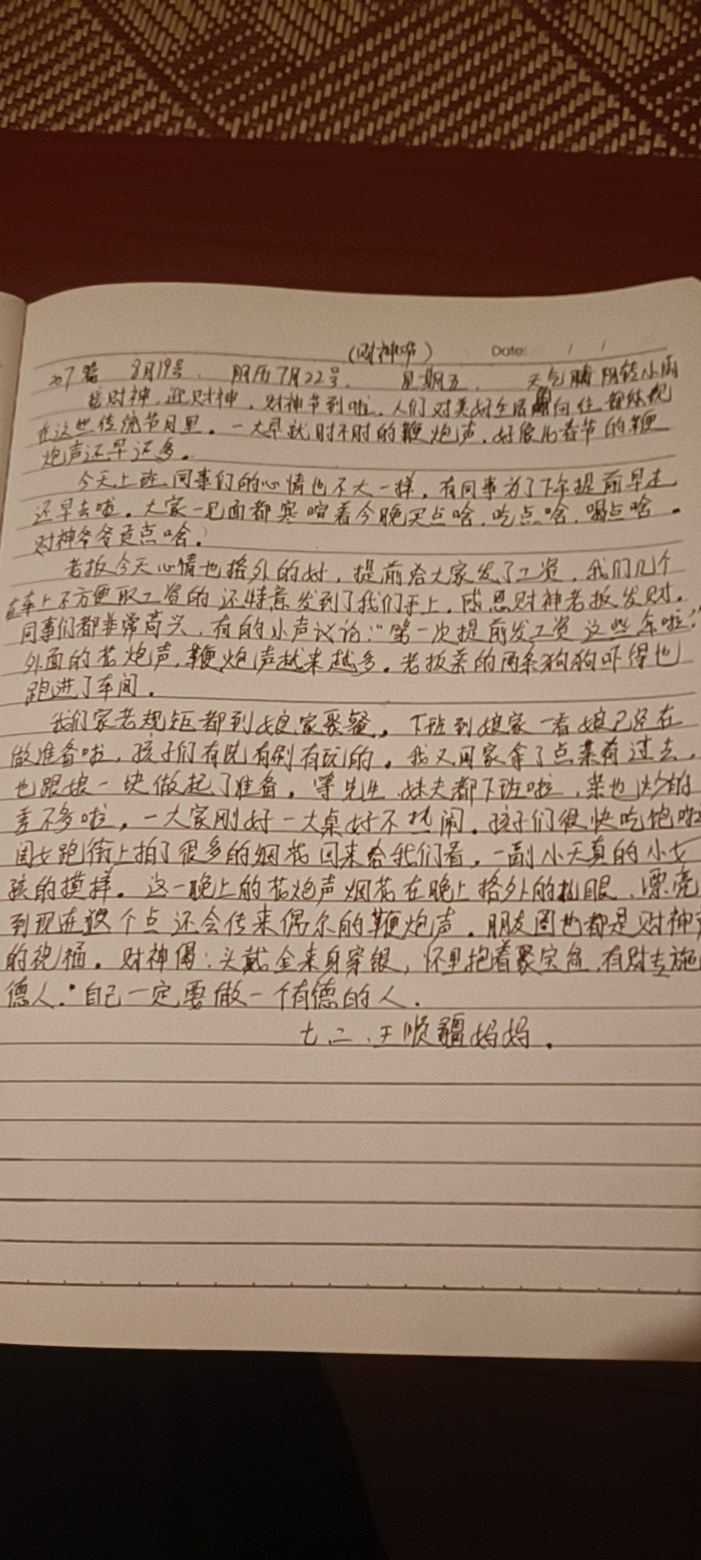 (财神节) Date: / /
207篇 8月19号. 阴历7月22号. 星期五. 天气晴阴转小雨
接财神,迎财神,财神节到啦,人们对美好生活的向往都体现
在这些传统节日里。一大早就时不时的鞭炮声,好像比春节的鞭
炮声还早还多。
今天上班,同事们的心情也不大一样,有同事为了下午提前早走
还早去啦。大家一见面都寒喧着今晚买点啥,吃点啥,喝点啥。
财神爷爷走点啥。
老板今天心情也格外的好,提前给大家发了工资,我们几个
在车上不方便取工资的还特意发到了我们手上,感恩财神老板发财。
同事们都非常高兴,有的小声议论:“第一次提前发工资这些年啦!”
外面的花炮声,鞭炮声越来越多。老板亲的两条狗狗吓得也
跑进了车间。
我们家老规矩都到娘家聚餐,下班到娘家一看娘已经在
做准备啦,孩子们有洗有剥有玩的。我又回家拿了点菜肴过去,
也跟娘一块做起了准备。等先生 妹夫都下班啦,菜也炒的
差不多啦,一大家刚好一大桌好不热闹。孩子们很快吃饱啦
闺女跑街上拍了很多的烟花回来给我们看,一副小天真的小女
孩的模样。这一晚上的花炮声烟花在晚上格外的扎眼,漂亮
到现在这个点还会传来偶尔的鞭炮声。朋友圈也都是财神节
的祝福。财神偈:头戴金来身穿银,怀里抱着聚宝盆,有财专施
德人.“自己一定要做一个有德的人.
七二、王顺疆妈妈.